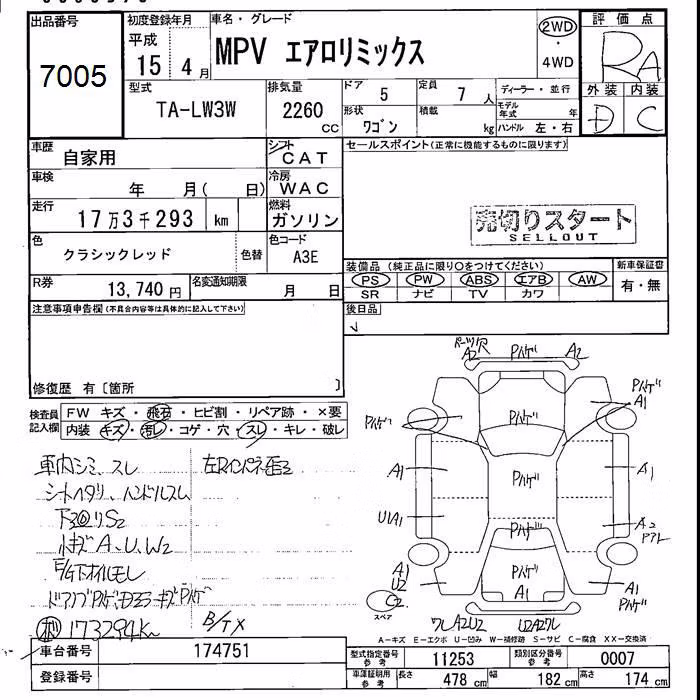 出品番号
7005
初度登録年月
平成
15年 4月
車名・グレード
MPV エアロリミックス
2WD
・
4WD
評価点
RA
外装 内装
D C
型式
TA-LW3W
排気量
2260 CC
ドア 5
定員 7 人
形状 ワゴン
積載 kg
ディーラー・並行
モデル年式 年
ハンドル 左・右
車歴
自家用
シフト
CAT
車検 年 月( 日)
冷房
WAC
走行 17万3千293 km
燃料
ガソリン
色
クラシックレッド
色替
色コード
A3E
R券
13,740 円
名変通知期限
月 日
セールスポイント(正常に機能するものに限ります)
売切りスタート
SELLOUT
装備品 (純正品に限り○をつけてください)
PS PW ABS エアB AW
SR ナビ TV カワ
新車保証書
有・無
注意事項申告欄(不具合内容等は具体的に記入して下さい)
後日品
修復歴 有〔箇所 〕
検査員記入欄
FW キズ・飛石・ヒビ割・リペア跡・×要
内装 キズ・汚レ・コゲ・穴・スレ・キレ・破レ
車内シミ、スレ
シートヘタリ、ハンドルスレ
小キズA、U、W2
E/G下オイルモレ
173294K
B/TX
A2 Pハゲ A2
Pハゲ
A1
Pハゲ
A1 Pハゲ A1
UA1
Pハゲ
A2
A1
U2
Pハゲ
A1
A1
Pハゲ
C2
スペア
A-キズ E-エクボ U-凹み W-補修跡 S-サビ C-腐食 XX-交換済
車台番号 174751
登録番号
型式指定番号 参考 11253
類別区分番号 参考 0007
車庫証明用 参考
長さ 478 cm
幅 182 cm
高さ 174 cm